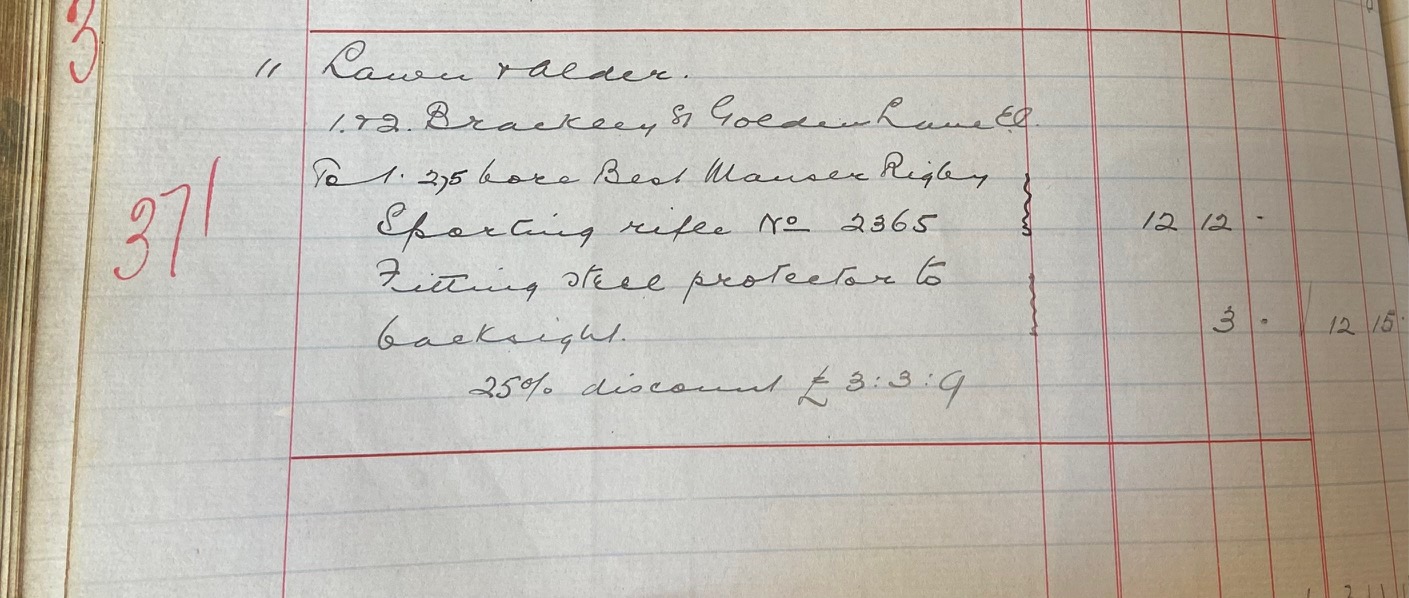 3
" Lawn & Alder.
1.&2. Brackley St Golden Lane EC.
To 1. 275 bore Best Mauser Rigby
371
Sporting rifle No 2365 12 12 -
Fitting steel protector to
backsight. 3 - 12 15 -
25% discount £3:3:9